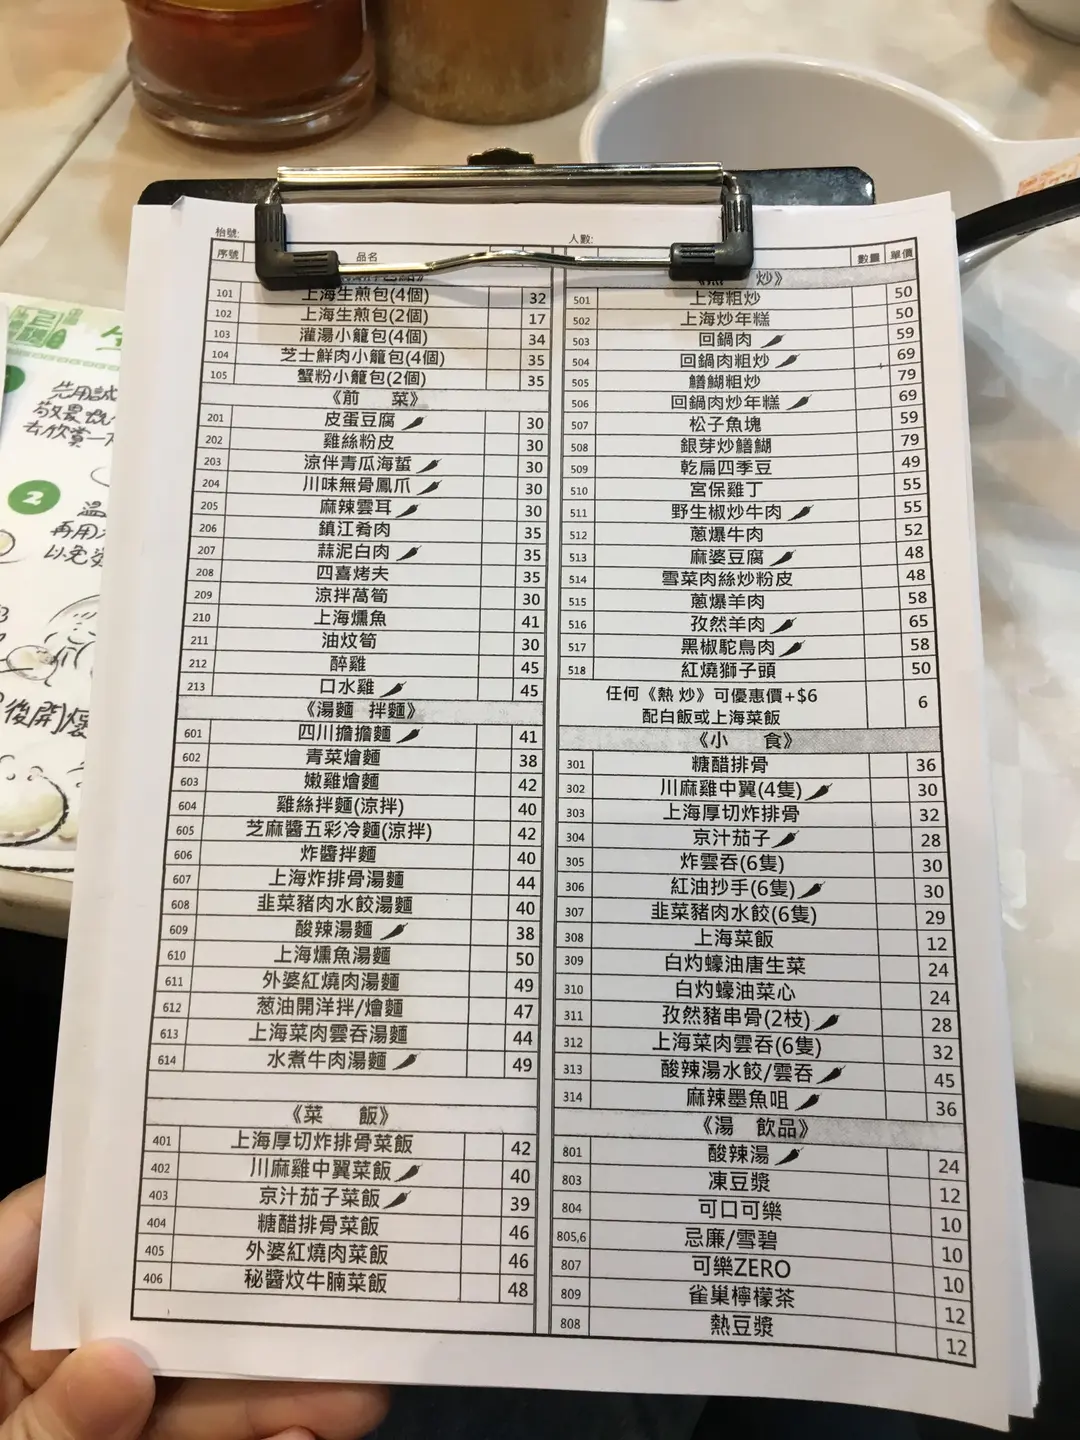 枱號:
人數:
序號 品名
數量 單價
101 上海生煎包(4個) 32
102 上海生煎包(2個) 17
103 灌湯小籠包(4個) 34
104 芝士鮮肉小籠包(4個) 35
105 蟹粉小籠包(2個) 35
《前 菜》
201 皮蛋豆腐 30
202 雞絲粉皮 30
203 涼伴青瓜海蜇 30
204 川味無骨鳳爪 30
205 麻辣雲耳 30
206 鎮江肴肉 35
207 蒜泥白肉 35
208 四喜烤夫 35
209 涼拌萵筍 30
210 上海燻魚 41
211 油炆筍 30
212 醉雞 45
213 口水雞 45
《湯麵 拌麵》
601 四川擔擔麵 41
602 青菜燴麵 38
603 嫩雞燴麵 42
604 雞絲拌麵(涼拌) 40
605 芝麻醬五彩冷麵(涼拌) 42
606 炸醬拌麵 40
607 上海炸排骨湯麵 44
608 韭菜豬肉水餃湯麵 40
609 酸辣湯麵 38
610 上海燻魚湯麵 50
611 外婆紅燒肉湯麵 49
612 葱油開洋拌/燴麵 47
613 上海菜肉雲吞湯麵 44
614 水煮牛肉湯麵 49
《菜 飯》
401 上海厚切炸排骨菜飯 42
402 川麻雞中翼菜飯 40
403 京汁茄子菜飯 39
404 糖醋排骨菜飯 46
405 外婆紅燒肉菜飯 46
406 秘醬炆牛腩菜飯 48
炒》
501 上海粗炒 50
502 上海炒年糕 50
503 回鍋肉 59
504 回鍋肉粗炒 69
505 鱔鰗粗炒 79
506 回鍋肉炒年糕 69
507 松子魚塊 59
508 銀芽炒鱔鰗 79
509 乾扁四季豆 49
510 宮保雞丁 55
511 野生椒炒牛肉 55
512 蔥爆牛肉 52
513 麻婆豆腐 48
514 雪菜肉絲炒粉皮 48
515 蔥爆羊肉 58
516 孜然羊肉 65
517 黑椒駝鳥肉 58
518 紅燒獅子頭 50
任何《熱 炒》可優惠價+$6
配白飯或上海菜飯 6
《小 食》
301 糖醋排骨 36
302 川麻雞中翼(4隻) 30
303 上海厚切炸排骨 32
304 京汁茄子 28
305 炸雲吞(6隻) 30
306 紅油抄手(6隻) 30
307 韭菜豬肉水餃(6隻) 29
308 上海菜飯 12
309 白灼蠔油唐生菜 24
310 白灼蠔油菜心 24
311 孜然豬串骨(2枝) 28
312 上海菜肉雲吞(6隻) 32
313 酸辣湯水餃/雲吞 45
314 麻辣墨魚咀 36
《湯 飲品》
801 酸辣湯 24
803 凍豆漿 12
804 可口可樂 10
805,6 忌廉/雪碧 10
807 可樂ZERO 10
809 雀巢檸檬茶 12
808 熱豆漿 12
先用誠
去欣賞一
2
再用
以免
後開